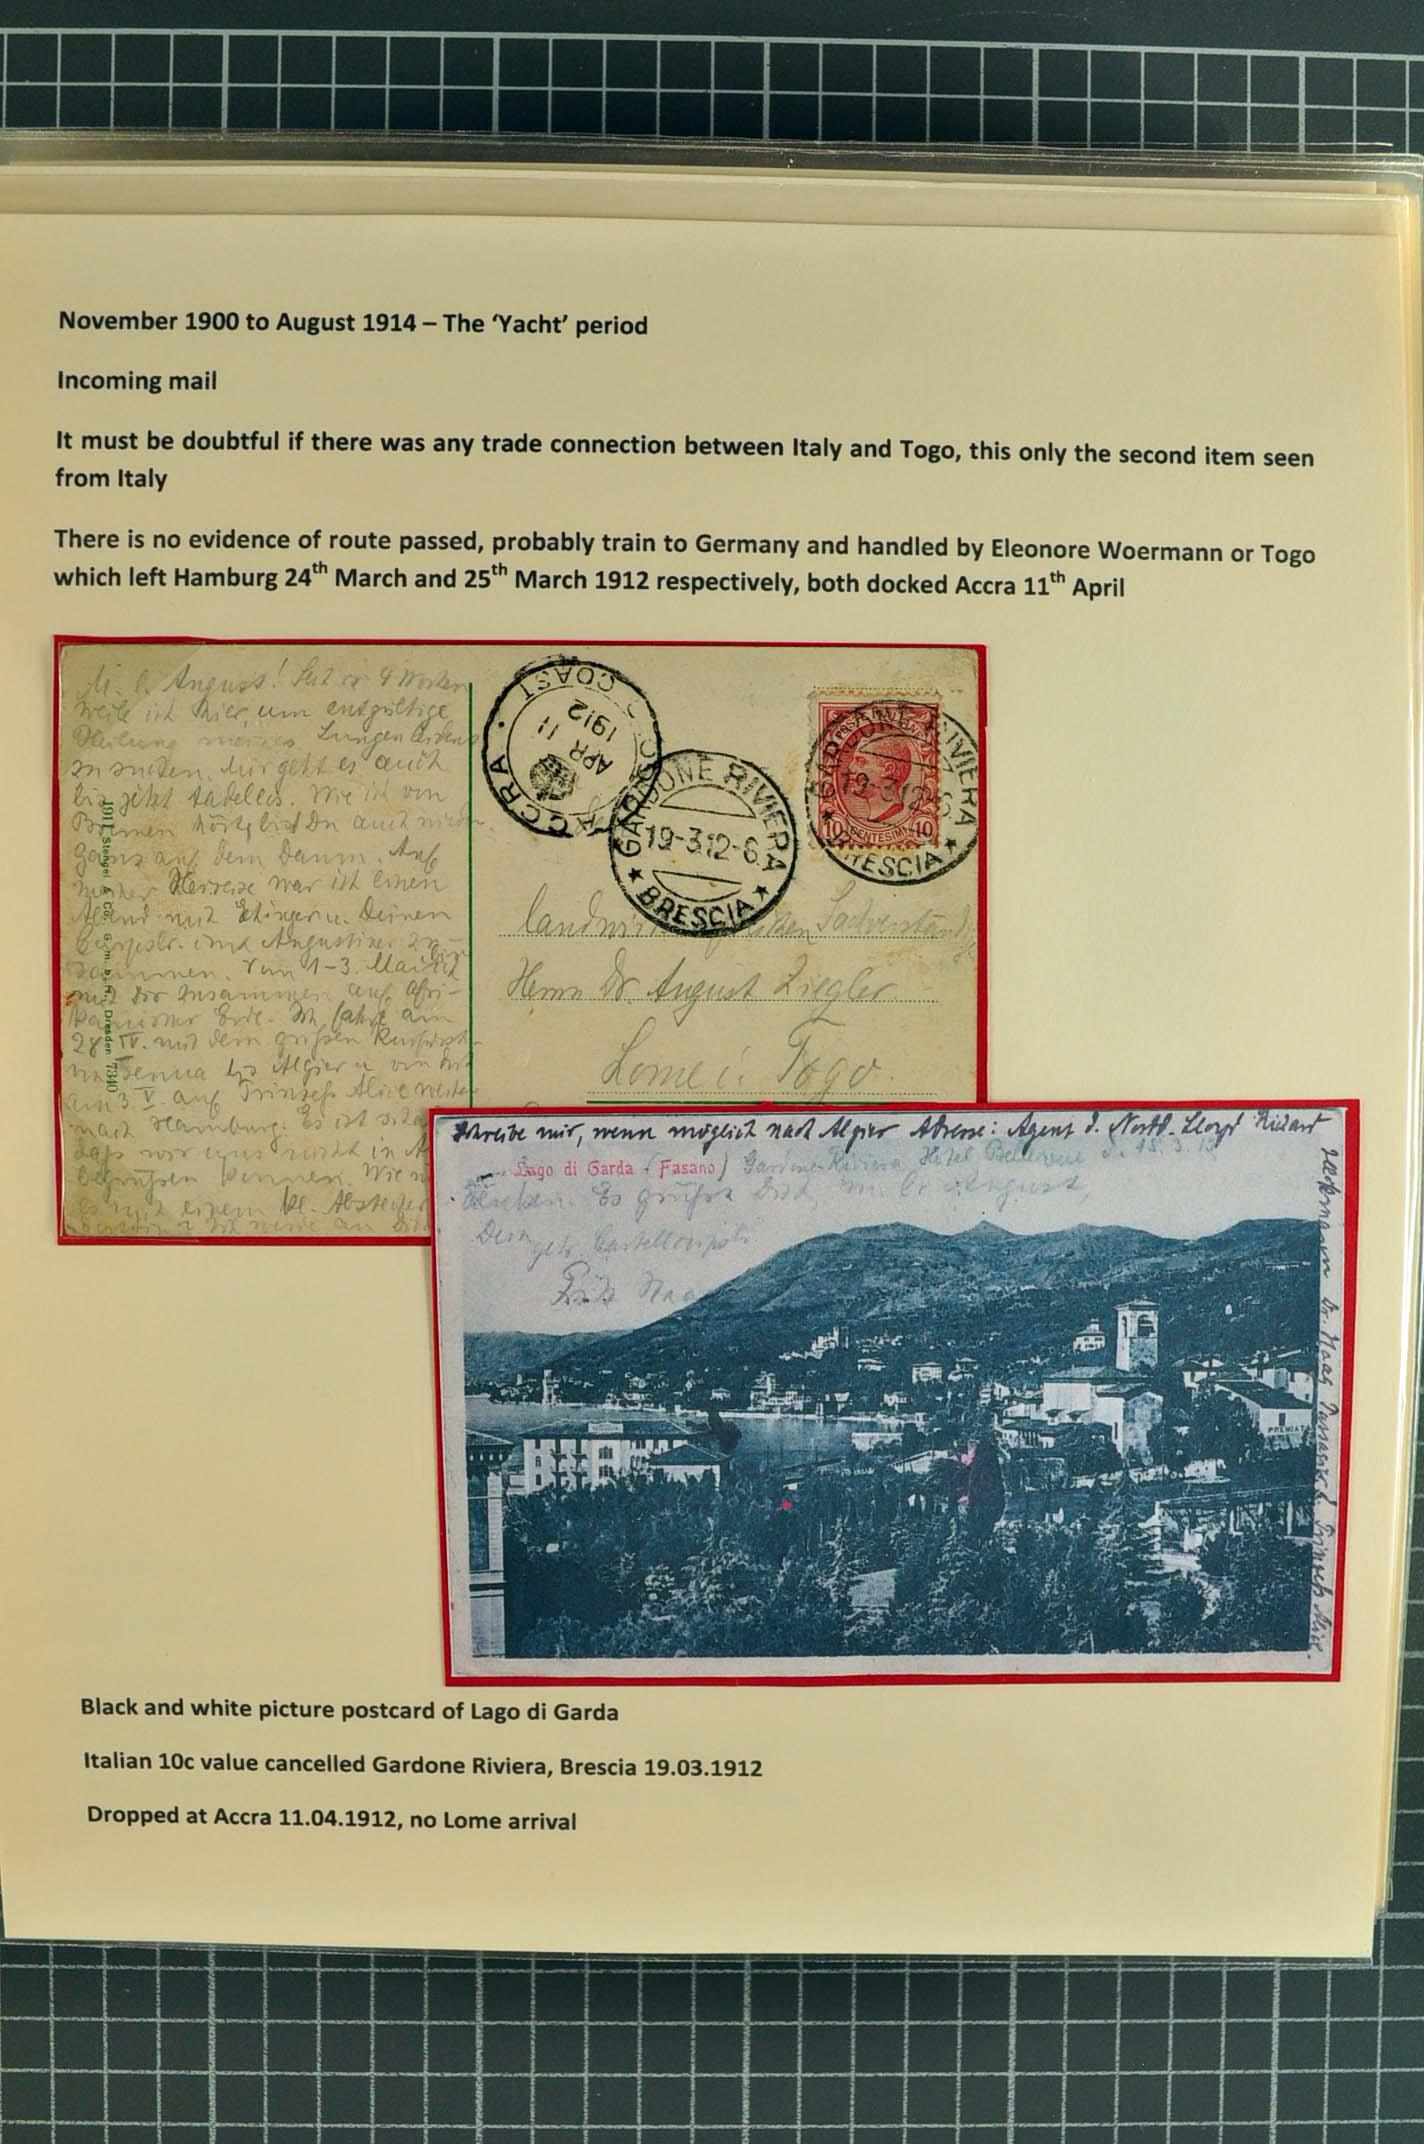 November 1900 to August 1914 – The ‘Yacht’ period
Incoming mail
It must be doubtful if there was any trade connection between Italy and Togo, this only the second item seen
from Italy
There is no evidence of route passed, probably train to Germany and handled by Eleonore Woermann or Togo
which left Hamburg 24th March and 25th March 1912 respectively, both docked Accra 11th April
M. l. August! Seit 4 Wochen
weile ich hier, um entgültige
Heilung meines Lungenleidens
zu suchen. Mir geht es auch
bis jetzt tadellos. Wie ich von
ganz auf dem Damm. Auf
meiner Herreise war ich einen
Abend mit
sammen. Vom 1-3. Mai
mit Dir zusammen auf afri-
kanischer Erde. Ich fahre am
28 IV. mit dem großen Kurfürst
von Genua bis Algier u. von dort
am 3. V. auf Prinzess Alice weiter
nach Hamburg. Es ist
daß wir uns nicht in
begrüßen können. Wie
es mit einem kl. Abstecher
1911 Stengel & Co., G. m. b. H., Dresden 7340
ACCRA · GOLD COAST
APR 11
1912
GARDONE RIVIERA
19-3.12-6
★ BRESCIA ★
POSTE ITALIANE
10 CENTESIMI 10
GARDONE RIVIERA
19-3.12-6
★ BRESCIA ★
Landwirtschaftlichen Sachverständigen
Herrn Dr. August Ziegler
Lome i. Togo.
Schreibe mir, wenn möglich nach Algier Adresse: Agent d. Nordd. Lloyd Richard
Lago di Garda (Fasano) Gardone-Riviera Hotel Bellevue d. 15.3.12
Es grüßt Dich, m. l. August,
Dein
Fritz Haag
Dr. Haag Passagier d. Prinzess Alice.
PREMIAT
Black and white picture postcard of Lago di Garda
Italian 10c value cancelled Gardone Riviera, Brescia 19.03.1912
Dropped at Accra 11.04.1912, no Lome arrival